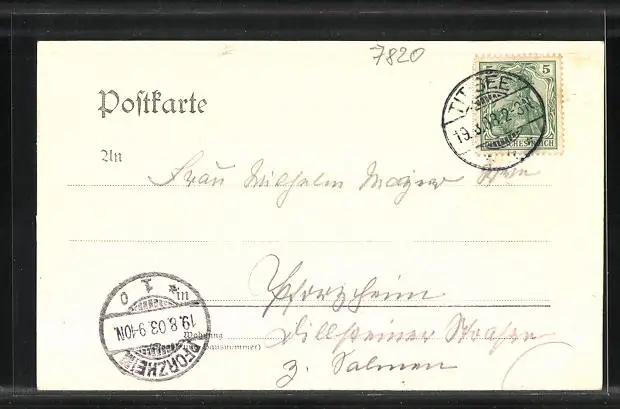 7820
5
TITISEE
19.8.03.2-3N.
DEUTSCHES REICH
Postkarte
An
Frau Wilhelm Majer
in Pforzheim
PFORZHEIM
19.8.03.9-10N.
* 1 o
Wohnung Dillsteiner Strasse
(und Hausnummer)
z. Salmen